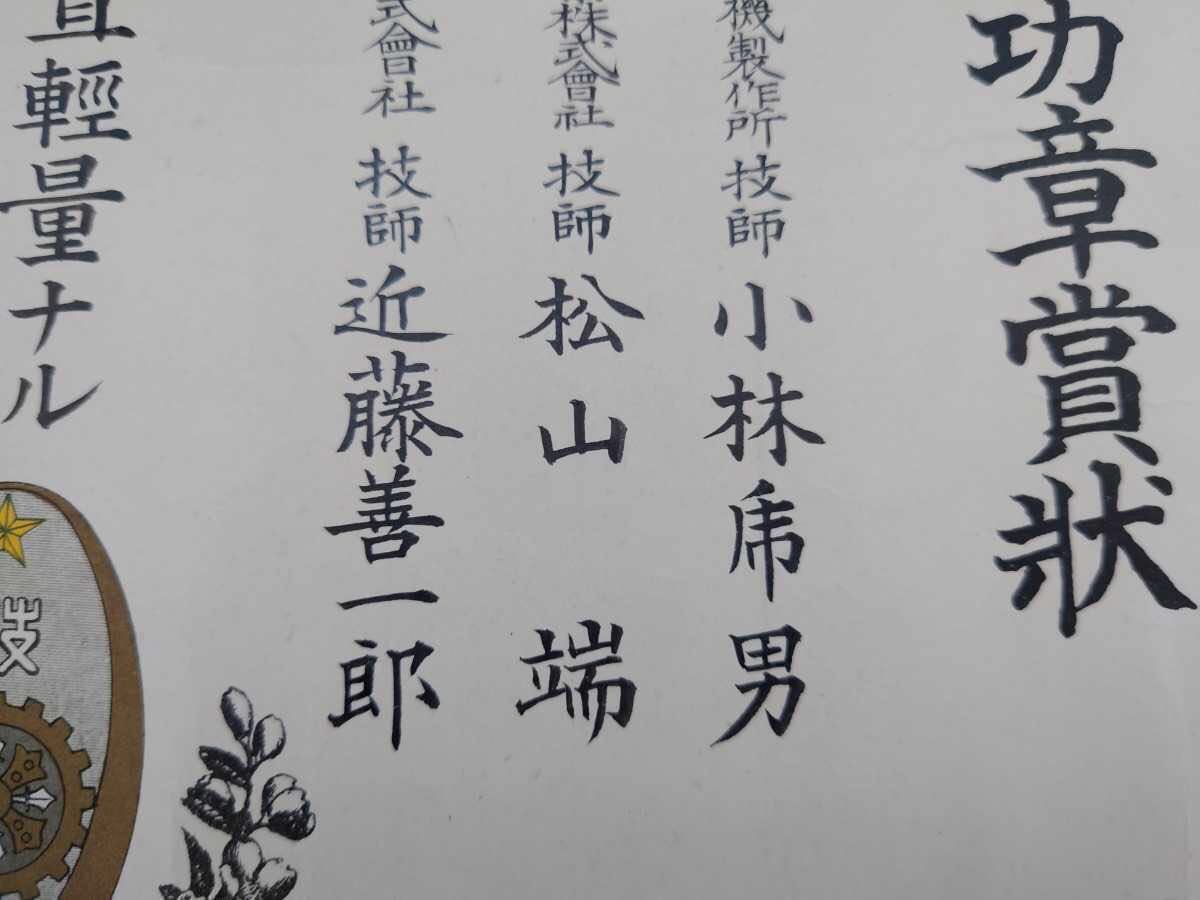 功章賞狀
機製作所技師 小林乕男
株式會社 技師 松山 端
式會社 技師 近藤善一郎
且輕量ナル
技